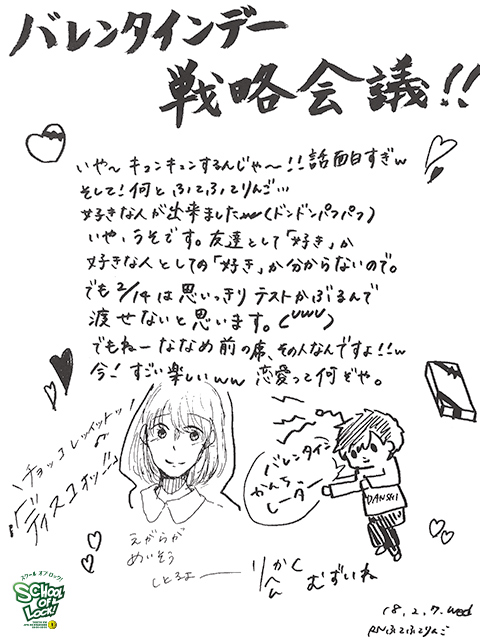 バレンタインデー
戦略会議!!
いや〜キュンキュンするんじゃ〜!!話面白すぎw
そして!何とふてふてりんご…
好きな人が出来ましたw(ドンドンパフパフ)
いや、うそです。友達として「好き」か
好きな人としての「好き」か分からないので。
でも2/14は思いっきりテストかぶるんで
渡せないと思います。(UωU)
でもねーななめ前の席、その人なんですよ!!w
今!すごい楽しいww 恋愛って何ぞや。
チョッコレッイットッ!
ディスコオッ!!
バレンタイン
かんち
レーダー
DANSHI
えがらが
めいそう
しとるよー
りかく
へん
むずいね
スクール オブ ロック!
SCHOOL
OF
LOCK!
18.2.7.wed
RNふてふてりんご